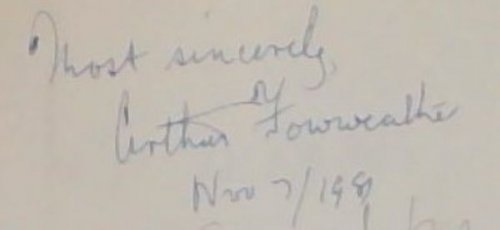 Most sincerely,
Arthur Fowweather
Nov 7/1981